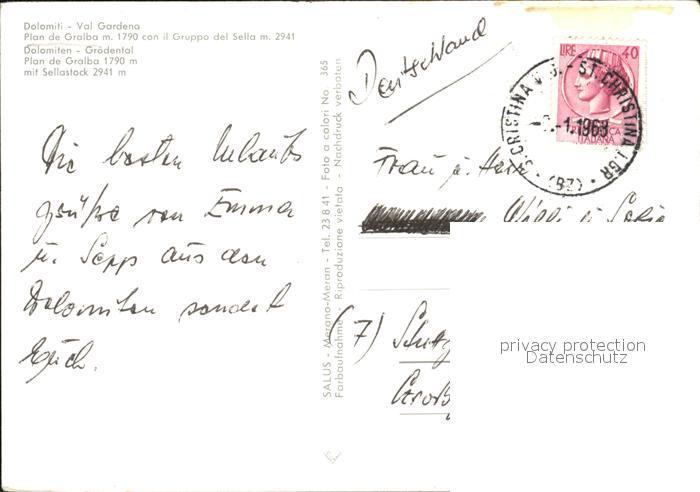 Dolomiti - Val Gardena
Plan de Gralba m. 1790 con il Gruppo del Sella m. 2941
Dolomiten - Grödental
Plan de Gralba 1790 m
mit Sellastock 2941 m
Die besten Urlaubs
grüße von Emma
u. Sepp aus den
Dolomiten sendet
Euch.
SALUS - Merano-Meran - Tel. 23 8 41 - Foto a colori No. 365
Farbaufnahme - Riproduzione vietata - Nachdruck verboten
Deutschland
LIRE 40
ITALIANA
S. CRISTINA V.G. - ST. CHRISTINA I. GR.
1.1968
(BZ)
Frau u. Herr
Willi u.
(7) Stuttg
Groß
privacy protection
Datenschutz